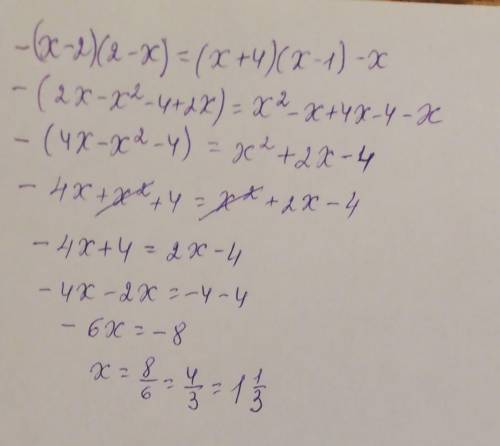 -(x-2)(2-x)=(x+4)(x-1)-x
-(2x-x²-4+2x)=x²-x+4x-4-x
-(4x-x²-4)=x²+2x-4
-4x+x²+4=x²+2x-4
-4x+4=2x-4
-4x-2x=-4-4
-6x=-8
x=8/6=4/3=1 1/3